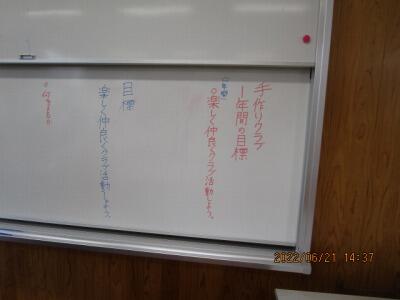 手作りクラブ
1年間の目標
〈年間〉
○楽しく仲良くクラブ活動しよう。
目標
楽しく仲良くクラブ活動しよう。
2022/06/21 14:37